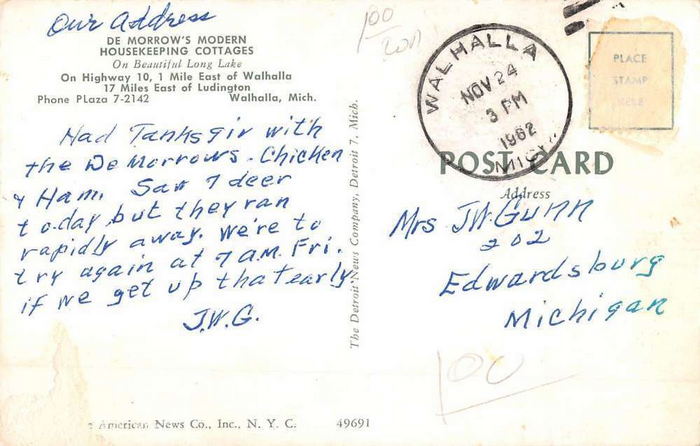 Our Address
DE MORROW'S MODERN
HOUSEKEEPING COTTAGES
On Beautiful Long Lake
On Highway 10, 1 Mile East of Walhalla
17 Miles East of Ludington
Phone PLaza 7-2142 Walhalla, Mich.
Had Tanksgiv with
the DeMorrows - Chicken
& Ham. Saw 7 deer
today but they ran
rapidly away. We're to
try again at 7 A.M. Fri.
if we get up that early
J.W.G.
The Detroit News Company, Detroit 7, Mich.
American News Co., Inc., N. Y. C. 49691
100
WALHALLA
NOV 24
3 PM
1962
MICH.
PLACE
STAMP
HERE
POST CARD
Address
Mrs J.W. Gunn
202
Edwardsburg
Michigan
100